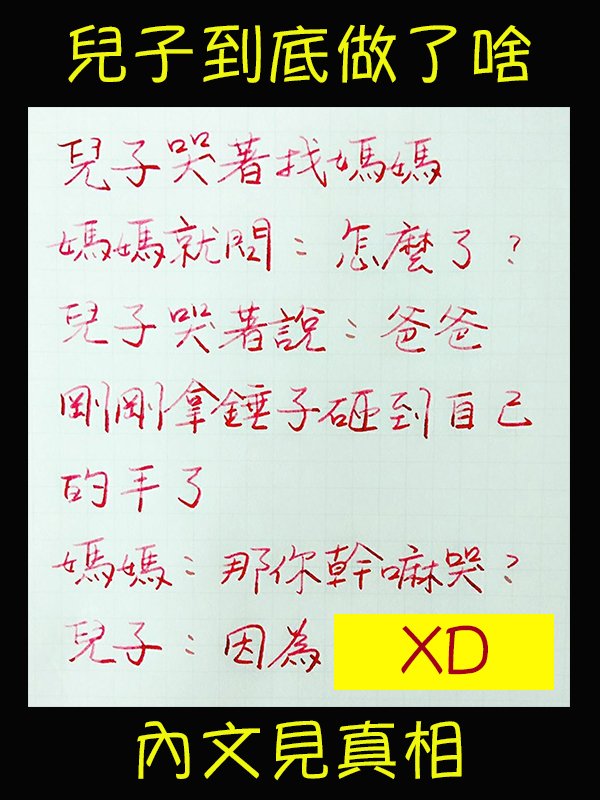 兒子到底做了啥
兒子哭著找媽媽
媽媽就問：怎麼了？
兒子哭著說：爸爸
剛剛拿錘子砸到自己
的手了
媽媽：那你幹嘛哭？
兒子：因為 XD
內文見真相